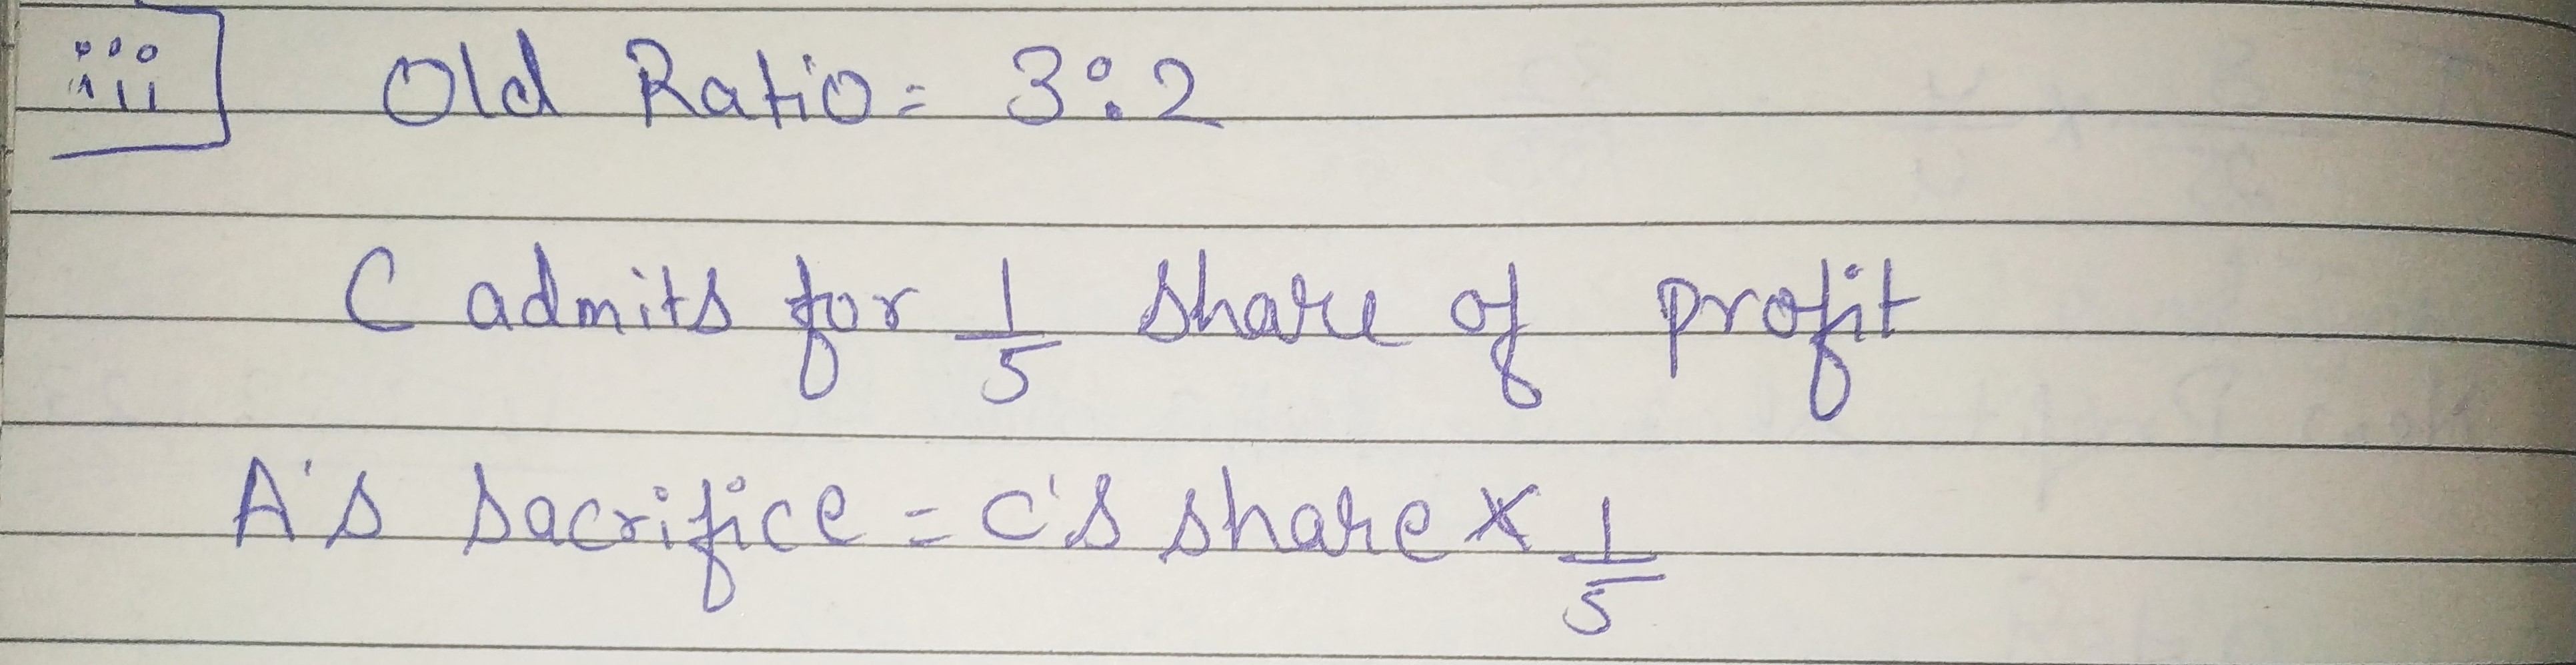 iii] Old Ratio = 3:2
C admits for 1/5 share of profit
A's sacrifice = C's share × 1/5